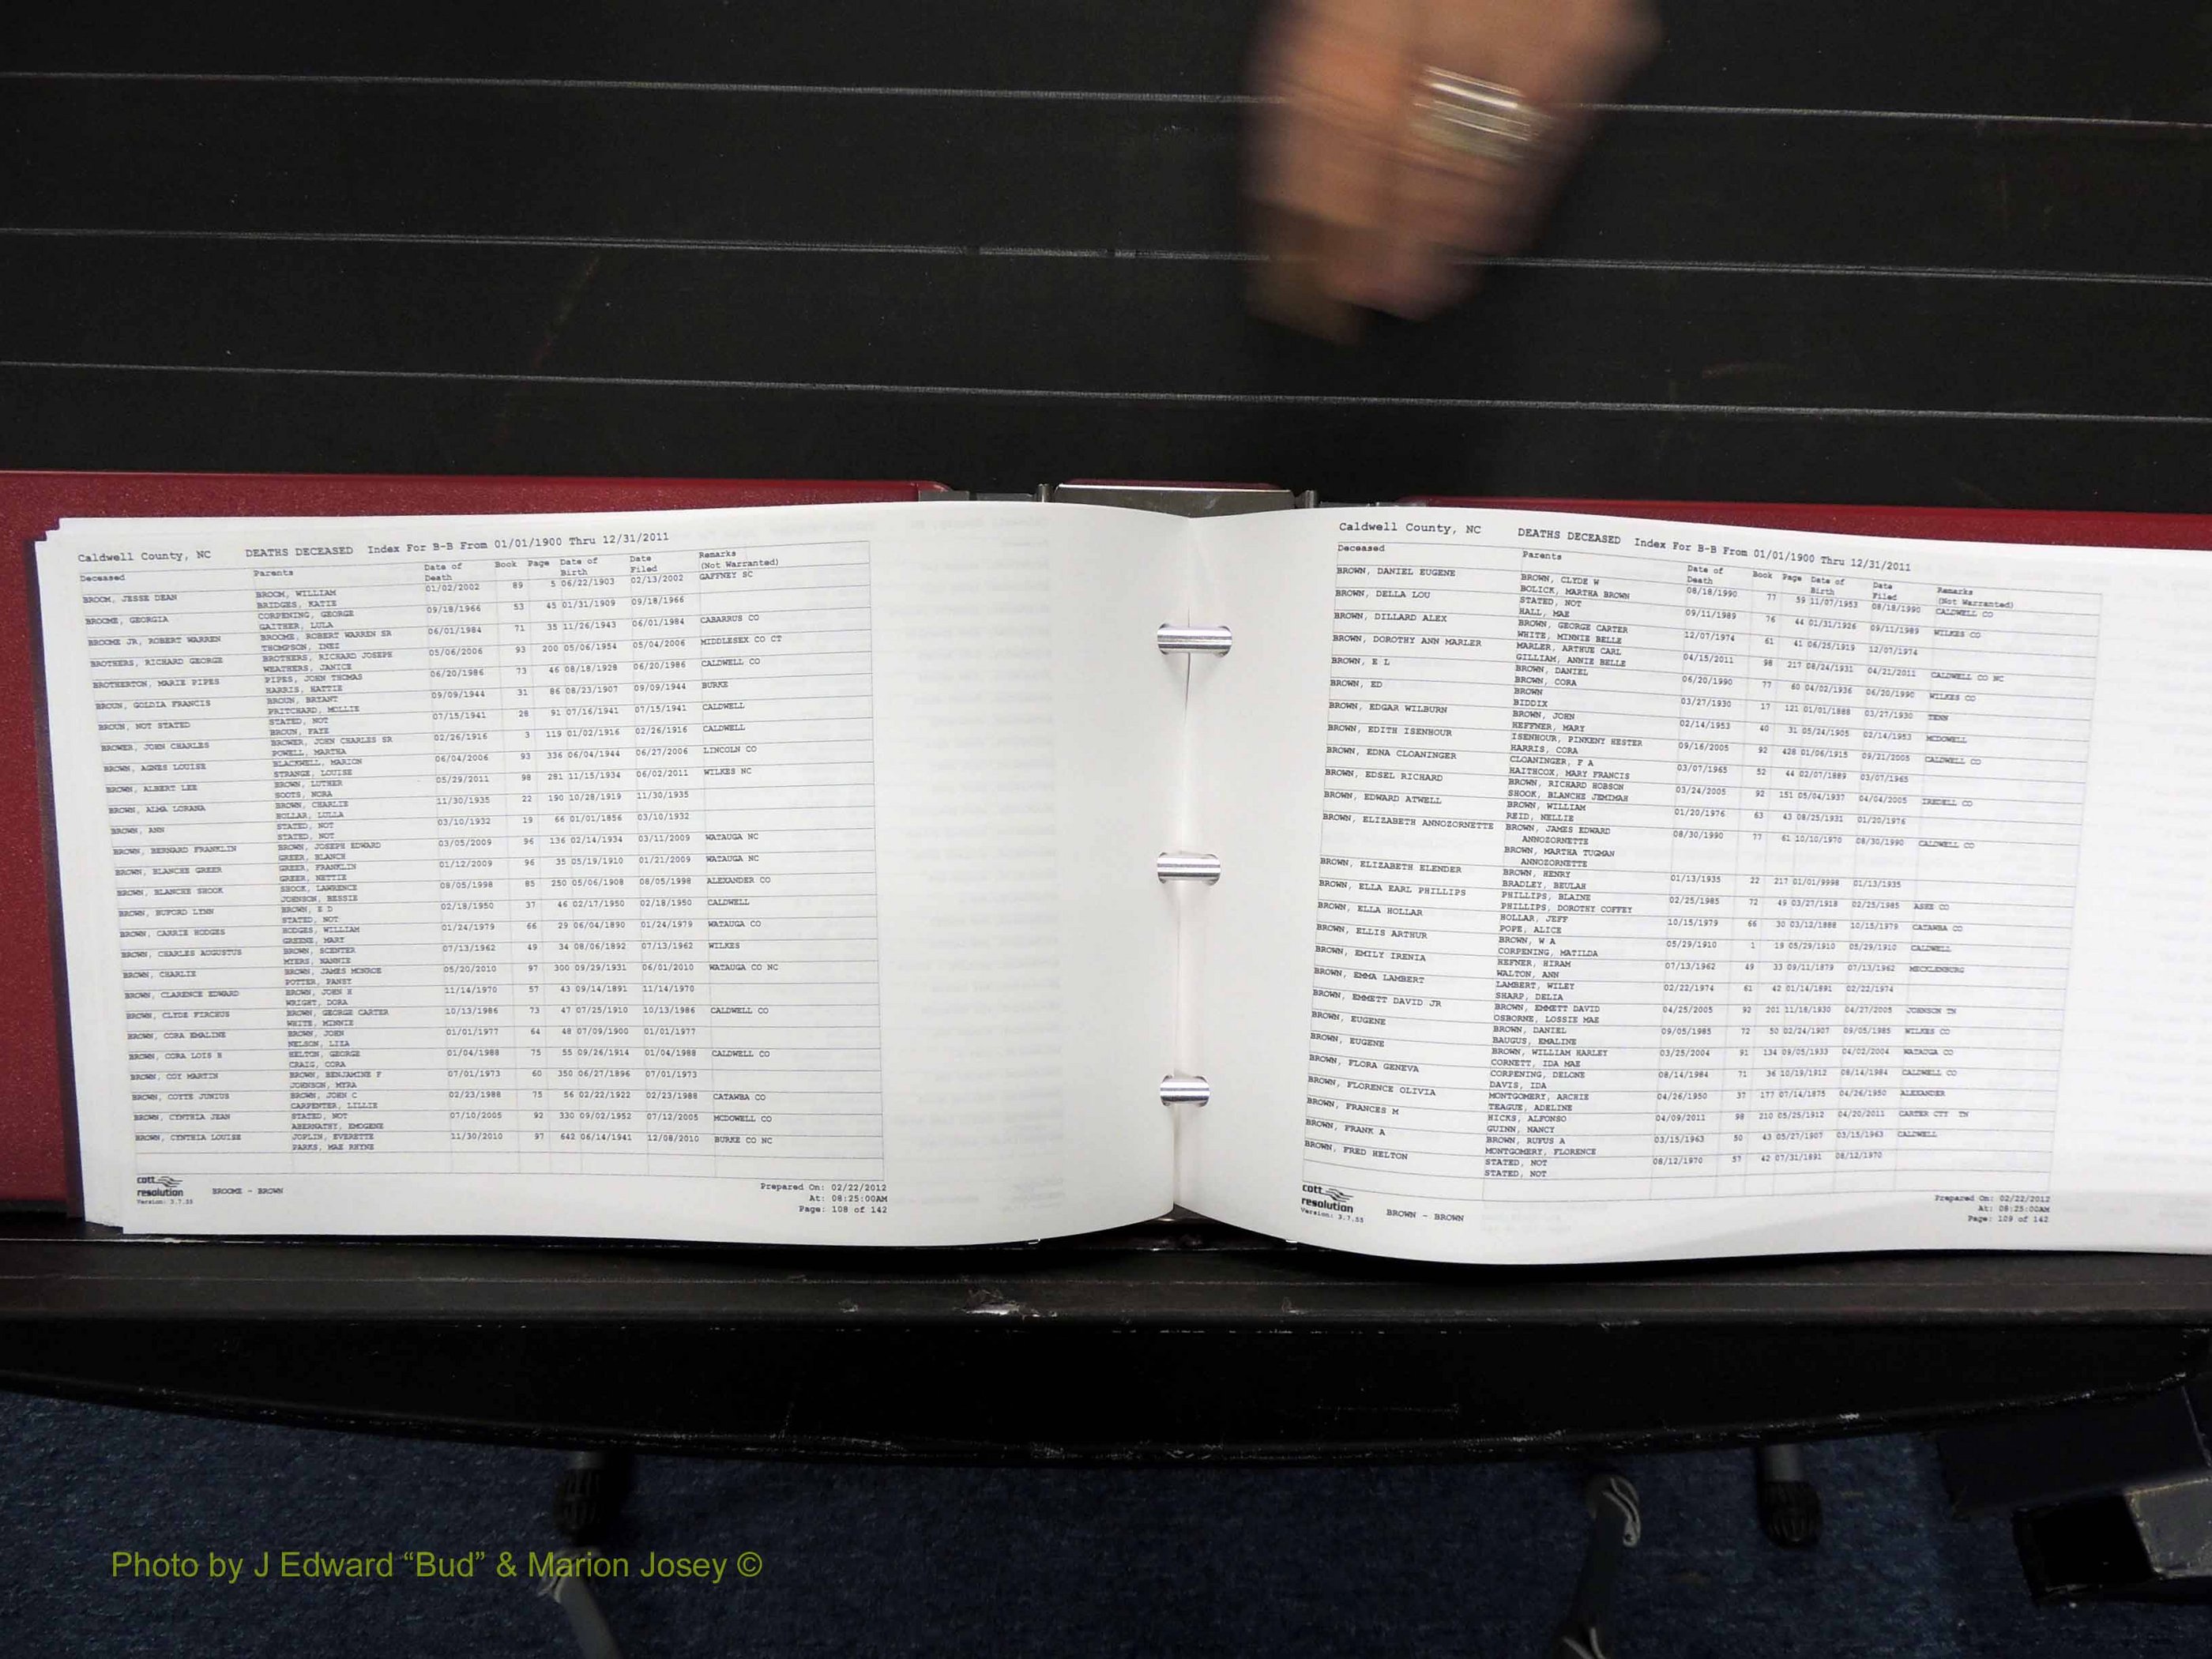 Caldwell County, NC DEATHS DECEASED Index For B-B From 01/01/1900 Thru 12/31/2011
Deceased Parents Date of Death Book Page Date of Birth Date Filed Remarks (Not Warranted)
BROOM, JESSE DEAN BROOM, WILLIAM 01/02/2002 89 5 06/22/1903 02/13/2002 GAFFNEY SC
BRIDGES, KATIE
BROOME, GEORGIA CORPENING, GEORGE 09/18/1966 53 45 01/31/1909 09/18/1966
GAITHER, LULA
BROOME JR, ROBERT WARREN BROOME, ROBERT WARREN SR 06/01/1984 71 35 11/26/1943 06/01/1984 CABARRUS CO
THOMPSON, INEZ
BROTHERS, RICHARD GEORGE BROTHERS, RICHARD JOSEPH 05/06/2006 93 200 05/06/1954 05/04/2006 MIDDLESEX CO CT
WEATHERS, JANICE
BROTHERTON, MARIE PIPES PIPES, JOHN THOMAS 06/20/1986 73 46 08/18/1928 06/20/1986 CALDWELL CO
HARRIS, HATTIE
BROUN, GOLDIA FRANCIS BROUN, BRYANT 09/09/1944 31 86 08/23/1907 09/09/1944 BURKE
PRITCHARD, MOLLIE
BROUN, NOT STATED STATED, NOT 07/15/1941 28 91 07/16/1941 07/15/1941 CALDWELL
BROUN, FAYE
BROWER, JOHN CHARLES BROWER, JOHN CHARLES SR 02/26/1916 3 119 01/02/1916 02/26/1916 CALDWELL
POWELL, MARTHA
BROWN, AGNES LOUISE BLACKWELL, MARION 06/04/2006 93 336 06/04/1944 06/27/2006 LINCOLN CO
STRANGE, LOUISE
BROWN, ALBERT LEE BROWN, LUTHER 05/29/2011 98 281 11/15/1934 06/02/2011 WILKES NC
SOOTS, NORA
BROWN, ALMA LORANA BROWN, CHARLIE 11/30/1935 22 190 10/28/1919 11/30/1935
HOLLAR, LULLA
BROWN, ANN STATED, NOT 03/10/1932 19 66 01/01/1856 03/10/1932
STATED, NOT
BROWN, BERNARD FRANKLIN BROWN, JOSEPH EDWARD 03/05/2009 96 136 02/14/1934 03/11/2009 WATAUGA NC
GREER, BLANCH
BROWN, BLANCHE GREER GREER, FRANKLIN 01/12/2009 96 35 05/19/1910 01/21/2009 WATAUGA NC
GREER, NETTIE
BROWN, BLANCHE SHOOK SHOOK, LAWRENCE 08/05/1998 85 250 05/06/1908 08/05/1998 ALEXANDER CO
JOHNSON, BESSIE
BROWN, BUFORD LYNN BROWN, E D 02/18/1950 37 46 02/17/1950 02/18/1950 CALDWELL
STATED, NOT
BROWN, CARRIE HODGES HODGES, WILLIAM 01/24/1979 66 29 06/04/1890 01/24/1979 WATAUGA CO
GREENE, MARY
BROWN, CHARLES AUGUSTUS BROWN, SCENTER 07/13/1962 49 34 08/06/1892 07/13/1962 WILKES
MYERS, NANNIE
BROWN, CHARLIE BROWN, JAMES MONROE 05/20/2010 97 300 09/29/1931 06/01/2010 WATAUGA CO NC
POTTER, PANSY
BROWN, CLARENCE EDWARD BROWN, JOHN H 11/14/1970 57 43 09/14/1891 11/14/1970
WRIGHT, DORA
BROWN, CLYDE FIRCHUS BROWN, GEORGE CARTER 10/13/1986 73 47 07/25/1910 10/13/1986 CALDWELL CO
WHITE, MINNIE
BROWN, CORA EMALINE BROWN, JOHN 01/01/1977 64 48 07/09/1900 01/01/1977
NELSON, LIZA
BROWN, CORA LOIS H HELTON, GEORGE 01/04/1988 75 55 09/26/1914 01/04/1988 CALDWELL CO
CRAIG, CORA
BROWN, COY MARTIN BROWN, BENJAMINE F 07/01/1973 60 350 06/27/1896 07/01/1973
JOHNSON, MYRA
BROWN, COYTE JUNIUS BROWN, JOHN C 02/23/1988 75 56 02/22/1922 02/23/1988 CATAWBA CO
CARPENTER, LILLIE
BROWN, CYNTHIA JEAN STATED, NOT 07/10/2005 92 330 09/02/1952 07/12/2005 MCDOWELL CO
ABERNATHY, EMOGENE
BROWN, CYNTHIA LOUISE JOPLIN, EVERETTE 11/30/2010 97 642 06/14/1941 12/08/2010 BURKE CO NC
PARKS, MAE RHYNE
cott resolution Version: 3.7.55 BROOME - BROWN
Prepared On: 02/22/2012
At: 08:25:00AM
Page: 108 of 142
Caldwell County, NC DEATHS DECEASED Index For B-B From 01/01/1900 Thru 12/31/2011
Deceased Parents Date of Death Book Page Date of Birth Date Filed Remarks (Not Warranted)
BROWN, DANIEL EUGENE BROWN, CLYDE W 08/18/1990 77 59 11/07/1953 08/18/1990 CALDWELL CO
BOLICK, MARTHA BROWN
BROWN, DELLA LOU STATED, NOT 09/11/1989 76 44 01/31/1926 09/11/1989 WILKES CO
HALL, MAE
BROWN, DILLARD ALEX BROWN, GEORGE CARTER 12/07/1974 61 41 06/25/1919 12/07/1974
WHITE, MINNIE BELLE
BROWN, DOROTHY ANN MARLER MARLER, ARTHUE CARL 04/15/2011 98 217 08/24/1931 04/21/2011 CALDWELL CO NC
GILLIAM, ANNIE BELLE
BROWN, E L BROWN, DANIEL 06/20/1990 77 60 04/02/1936 06/20/1990 WILKES CO
BROWN, CORA
BROWN, ED BROWN 03/27/1930 17 121 01/01/1888 03/27/1930 TENN
BIDDIX
BROWN, EDGAR WILBURN BROWN, JOHN 02/14/1953 40 31 05/24/1905 02/14/1953 MCDOWELL
HEFFNER, MARY
BROWN, EDITH ISENHOUR ISENHOUR, PINKENY HESTER 09/16/2005 92 428 01/06/1915 09/21/2005 CALDWELL CO
HARRIS, CORA
BROWN, EDNA CLOANINGER CLOANINGER, F A 03/07/1965 52 44 02/07/1889 03/07/1965
HAITHCOX, MARY FRANCIS
BROWN, EDSEL RICHARD BROWN, RICHARD HOBSON 03/24/2005 92 151 05/04/1937 04/04/2005 IREDELL CO
SHOOK, BLANCHE JEMIMAH
BROWN, EDWARD ATWELL BROWN, WILLIAM 01/20/1976 63 43 08/25/1931 01/20/1976
REID, NELLIE
BROWN, ELIZABETH ANNOZORNETTE BROWN, JAMES EDWARD 08/30/1990 77 61 10/10/1970 08/30/1990 CALDWELL CO
ANNOZORNETTE
BROWN, MARTHA TUGMAN
ANNOZORNETTE
BROWN, ELIZABETH ELENDER BROWN, HENRY 01/13/1935 22 217 01/01/9998 01/13/1935
BRADLEY, BEULAH
BROWN, ELLA EARL PHILLIPS PHILLIPS, BLAINE 02/25/1985 72 49 03/27/1918 02/25/1985 ASHE CO
PHILLIPS, DOROTHY COFFEY
BROWN, ELLA HOLLAR HOLLAR, JEFF 10/15/1979 66 30 03/12/1888 10/15/1979 CATAWBA CO
POPE, ALICE
BROWN, ELLIS ARTHUR BROWN, W A 05/29/1910 1 19 05/29/1910 05/29/1910 CALDWELL
CORPENING, MATILDA
BROWN, EMILY IRENIA HEFNER, HIRAM 07/13/1962 49 33 09/11/1879 07/13/1962 MECKLENBURG
WALTON, ANN
BROWN, EMMA LAMBERT LAMBERT, WILEY 02/22/1974 61 42 01/14/1891 02/22/1974
SHARP, DELIA
BROWN, EMMETT DAVID JR BROWN, EMMETT DAVID 04/25/2005 92 201 11/18/1930 04/27/2005 JOHNSON TN
OSBORNE, LOSSIE MAE
BROWN, EUGENE BROWN, DANIEL 09/05/1985 72 50 02/24/1907 09/05/1985 WILKES CO
BAUGUS, EMALINE
BROWN, EUGENE BROWN, WILLIAM HARLEY 03/25/2004 91 134 09/05/1933 04/02/2004 WATAUGA CO
CORNETT, IDA MAE
BROWN, FLORA GENEVA CORPENING, DELONE 08/14/1984 71 36 10/19/1912 08/14/1984 CALDWELL CO
DAVIS, IDA
BROWN, FLORENCE OLIVIA MONTGOMERY, ARCHIE 04/26/1950 37 177 07/14/1875 04/26/1950 ALEXANDER
TEAGUE, ADELINE
BROWN, FRANCES M HICKS, ALFONSO 04/09/2011 98 210 05/25/1912 04/20/2011 CARTER CTY TN
GUINN, NANCY
BROWN, FRANK A BROWN, RUFUS A 03/15/1963 50 43 05/27/1907 03/15/1963 CALDWELL
MONTGOMERY, FLORENCE
BROWN, FRED HELTON STATED, NOT 08/12/1970 57 42 07/31/1891 08/12/1970
STATED, NOT
cott resolution Version: 3.7.55 BROWN - BROWN
Prepared On: 02/22/2012
At: 08:25:00AM
Page: 109 of 142
Photo by J Edward “Bud” & Marion Josey ©